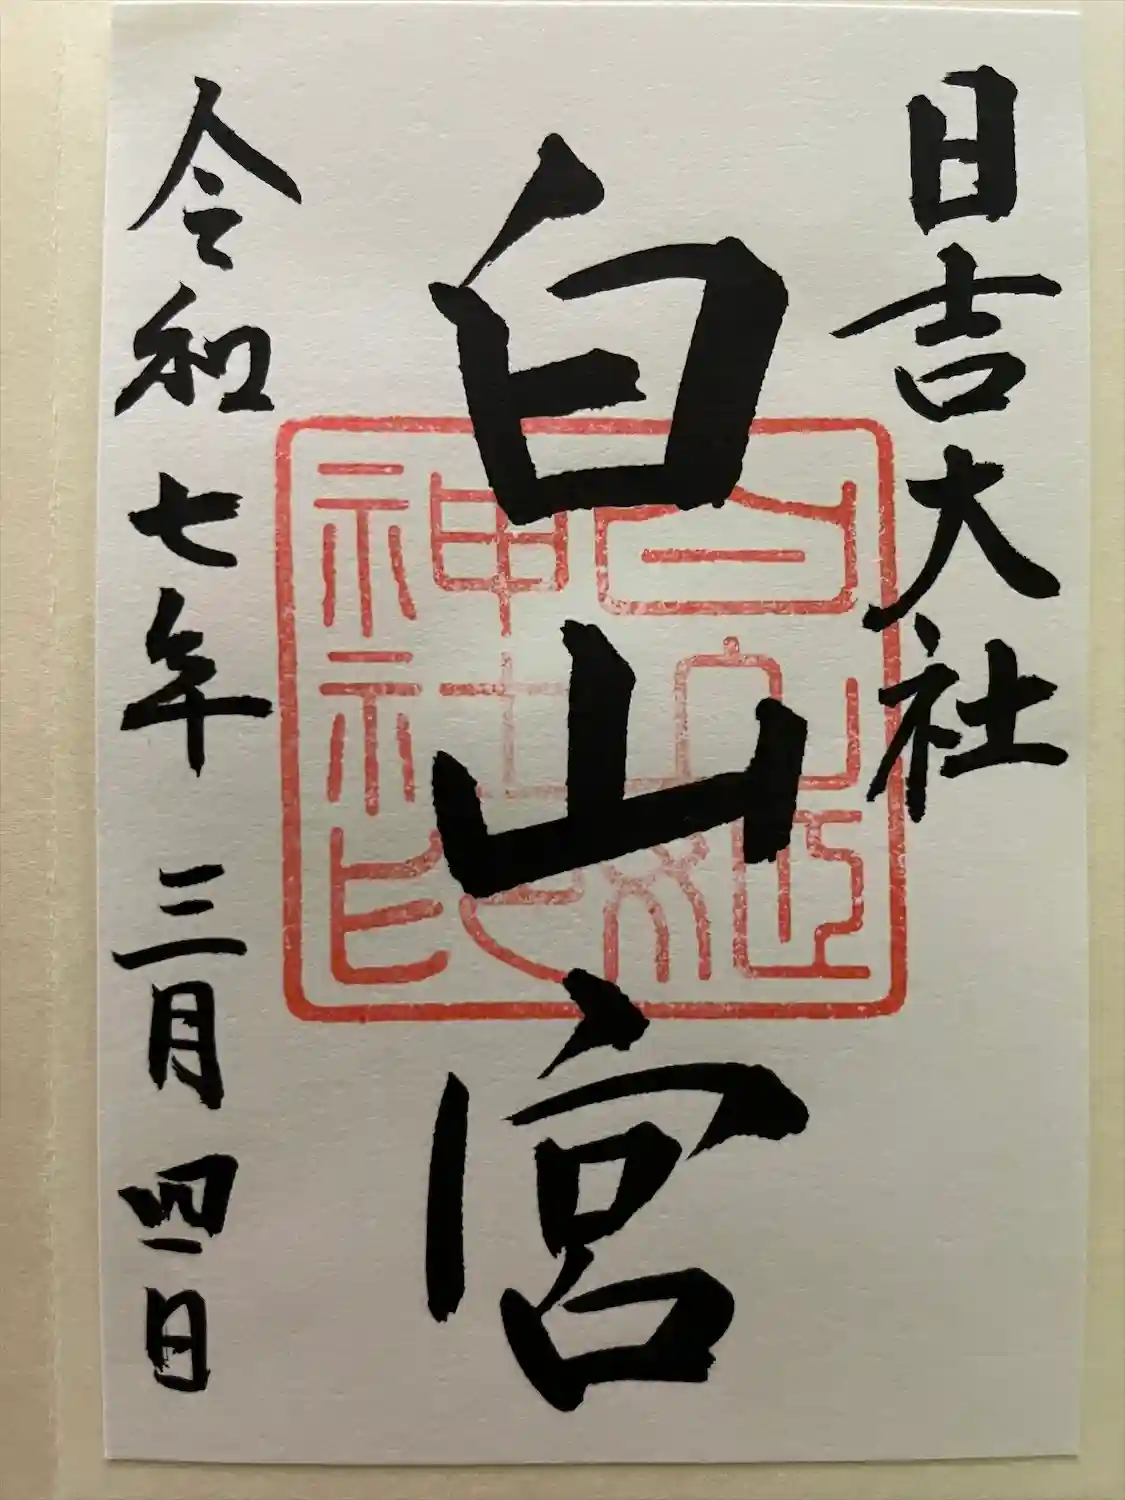 日吉大社
白山宮
白山姫
神社印
令和七年三月四日